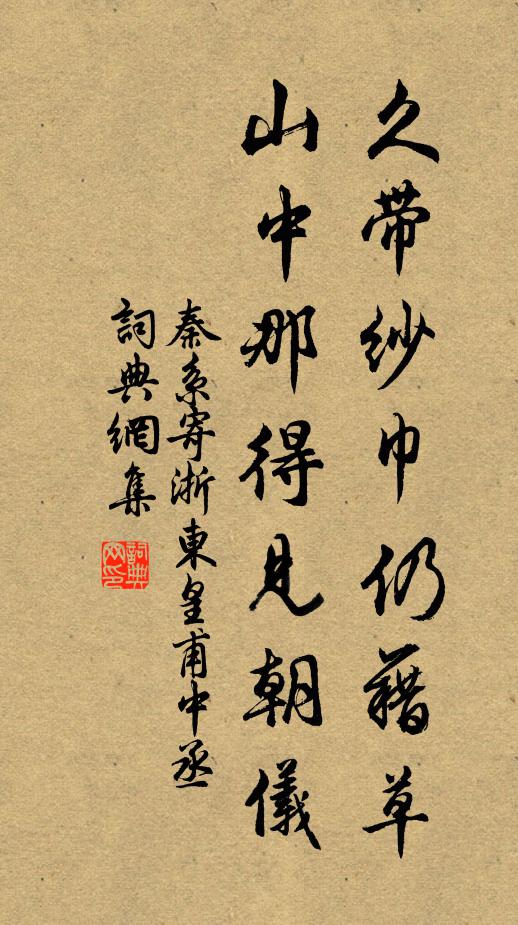 久帶紗巾仍藉草
山中那得見朝儀
秦系寄浙東皇甫中丞
詞典網集
詞典网印